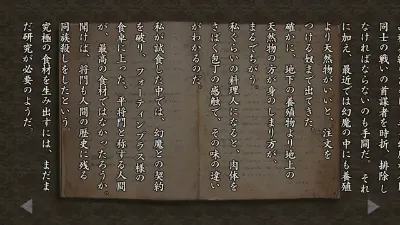 同士の戦いの首謀者を時折、排除し
なければならないのも手間だ。それ
に加え、最近では幻魔の中にも養殖
より天然物がいいと、注文を
つける奴まで出てきた。
確かに、地下の養殖物より地上の
天然物の方が、身のしまり方が、
まるでちがう。
私ぐらいの料理人になると、肉体を
さばく包丁の感触で、その味の違い
がわかるのだ。
私が試食した中では、幻魔との契約
を破り、フォーティンブラス様の
食卓に上った、平将門と称する人間
が、最高の食材ではなかったろうか。
聞けば、将門も人間の歴史に残る
同族殺しをしたという。
究極の食材を生み出すには、まだま
だ研究が必要のようだ。